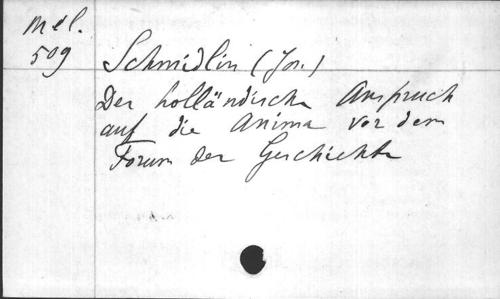 Mél.
509
Schmidlin (Jos.)
Der holländische Anspruch
auf die Anima vor dem
Forum der Geschichte